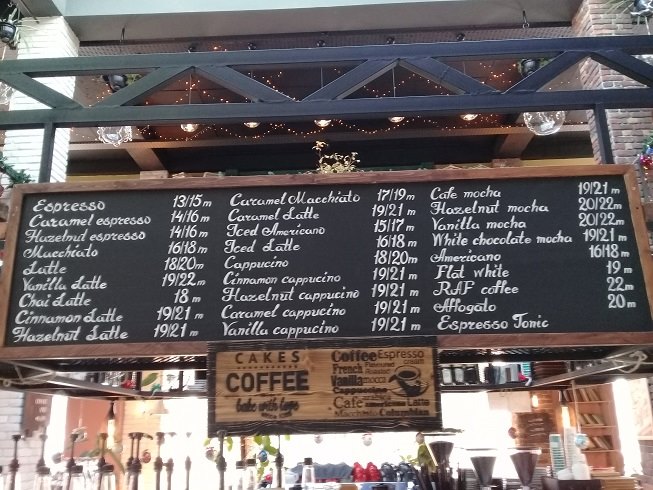 Espresso 13/15 m
Caramel espresso 14/16 m
Hazelnut espresso 14/16 m
Macchiato 16/18 m
Latte 18/20 m
Vanilla Latte 19/22 m
Chai Latte 18 m
Cinnamon Latte 19/21 m
Hazelnut Latte 19/21 m
Caramel Macchiato 17/19 m
Caramel Latte 19/21 m
Iced Americano 15/17 m
Iced Latte 16/18 m
Cappucino 18/20 m
Cinnamon cappucino 19/21 m
Hazelnut cappucino 19/21 m
Caramel cappucino 19/21 m
Vanilla cappucino 19/21 m
Cafe mocha 19/21 m
Hazelnut mocha 20/22 m
Vanilla mocha 20/22 m
White chocolate mocha 19/21 m
Americano 16/18 m
Flat white 19 m
RAF coffee 22 m
Affogato 20 m
Espresso Tonic
CAKES
COFFEE
bake with love
Coffee Espresso
French cream
Flavoured
Roasted
Vanilla mocca
Cafe Latte
Macchiato Columbian